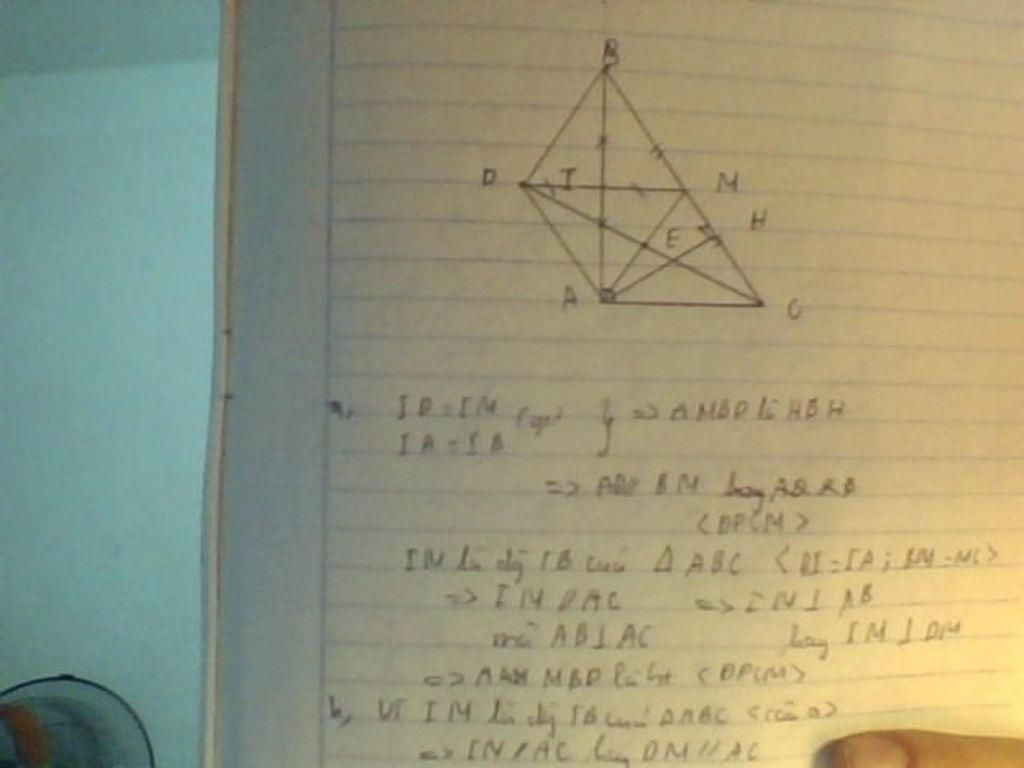 B
D I M
H
E
A C
a, ID = IM
IA = IB } => AMBD là HBH
=> BM hay
<ĐPCM>
IM là đg TB của Δ ABC < BI = IA ; BM = MC >
=> IM // AC => IM ⊥ AB
mà AB ⊥ AC hay IM ⊥ DM
=> MBD là <ĐPCM>
b, Vì IM là đg TB của ΔABC <câu a>
=> IM // AC hay DM // AC